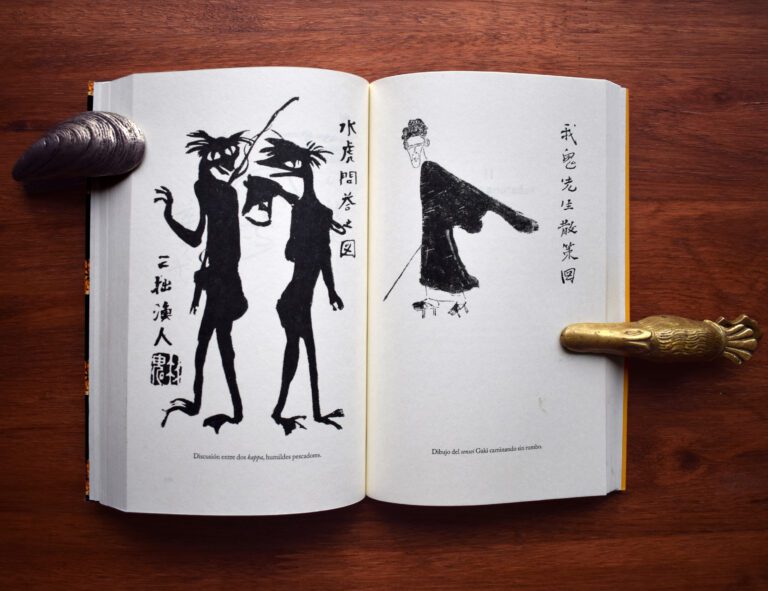 水虎問答之図
拙漁人
Discusión entre dos kappa, humildes pescadores.
我鬼先生散策図
Dibujo del sensei Gaki caminando sin rumbo.